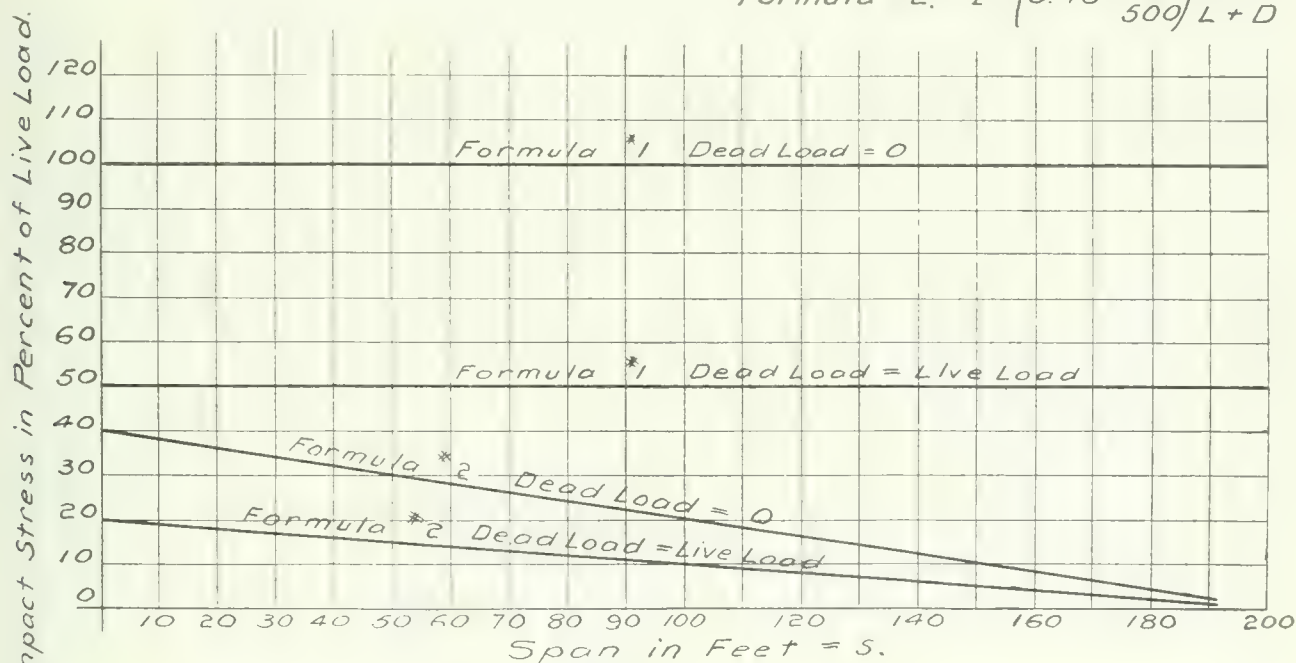 500/ L + D
Impact Stress in Percent of Live Load.
120
110
100
90
80
70
60
50
40
30
20
10
0
Formula #1 Dead Load = 0
Formula #1 Dead Load = Live Load
Formula #2 Dead Load = 0
Formula #2 Dead Load = Live Load
10 20 30 40 50 60 70 80 90 100 120 140 160 180 200
Span in Feet = S.